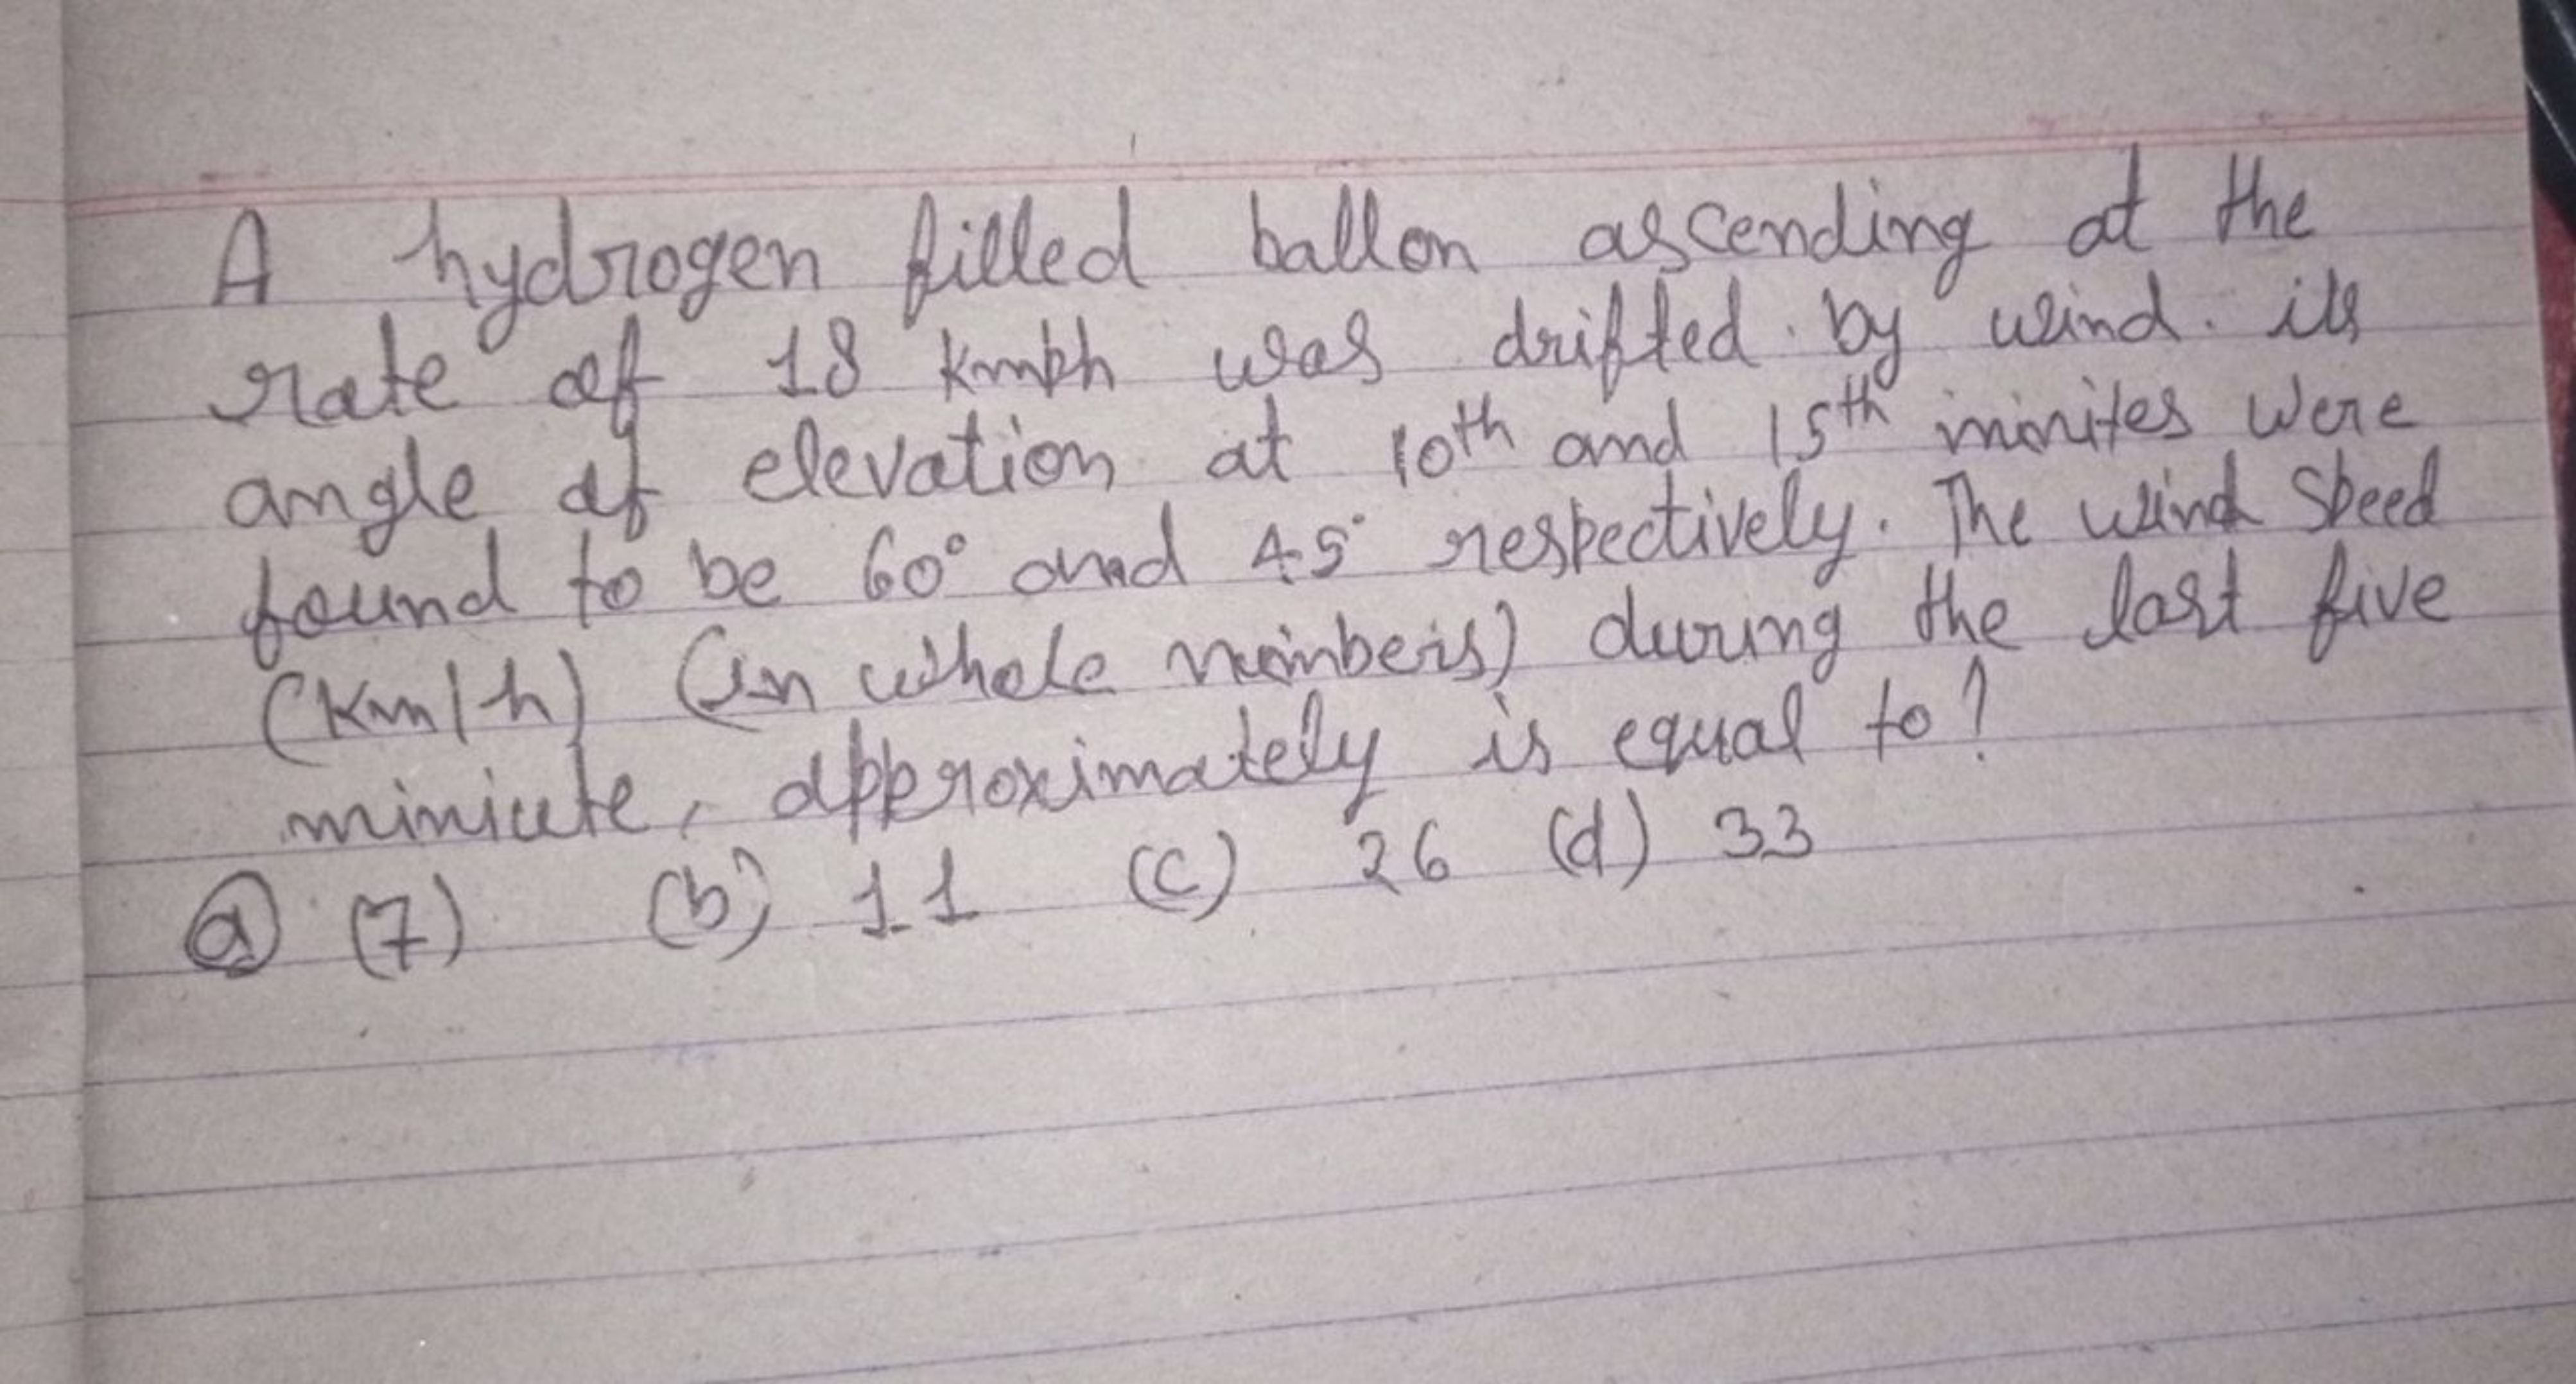 A hydrogen filled ballon ascending at the
rate of 18 kmph was drifted by wind. its
angle of elevation at 10th and 15th minites were
found to be 60° and 45° respectively. The wind speed
(km/h) (in whole numbers) during the last five
miniute, approximately is equal to?
(a) (7) (b) 11 (c) 26 (d) 33